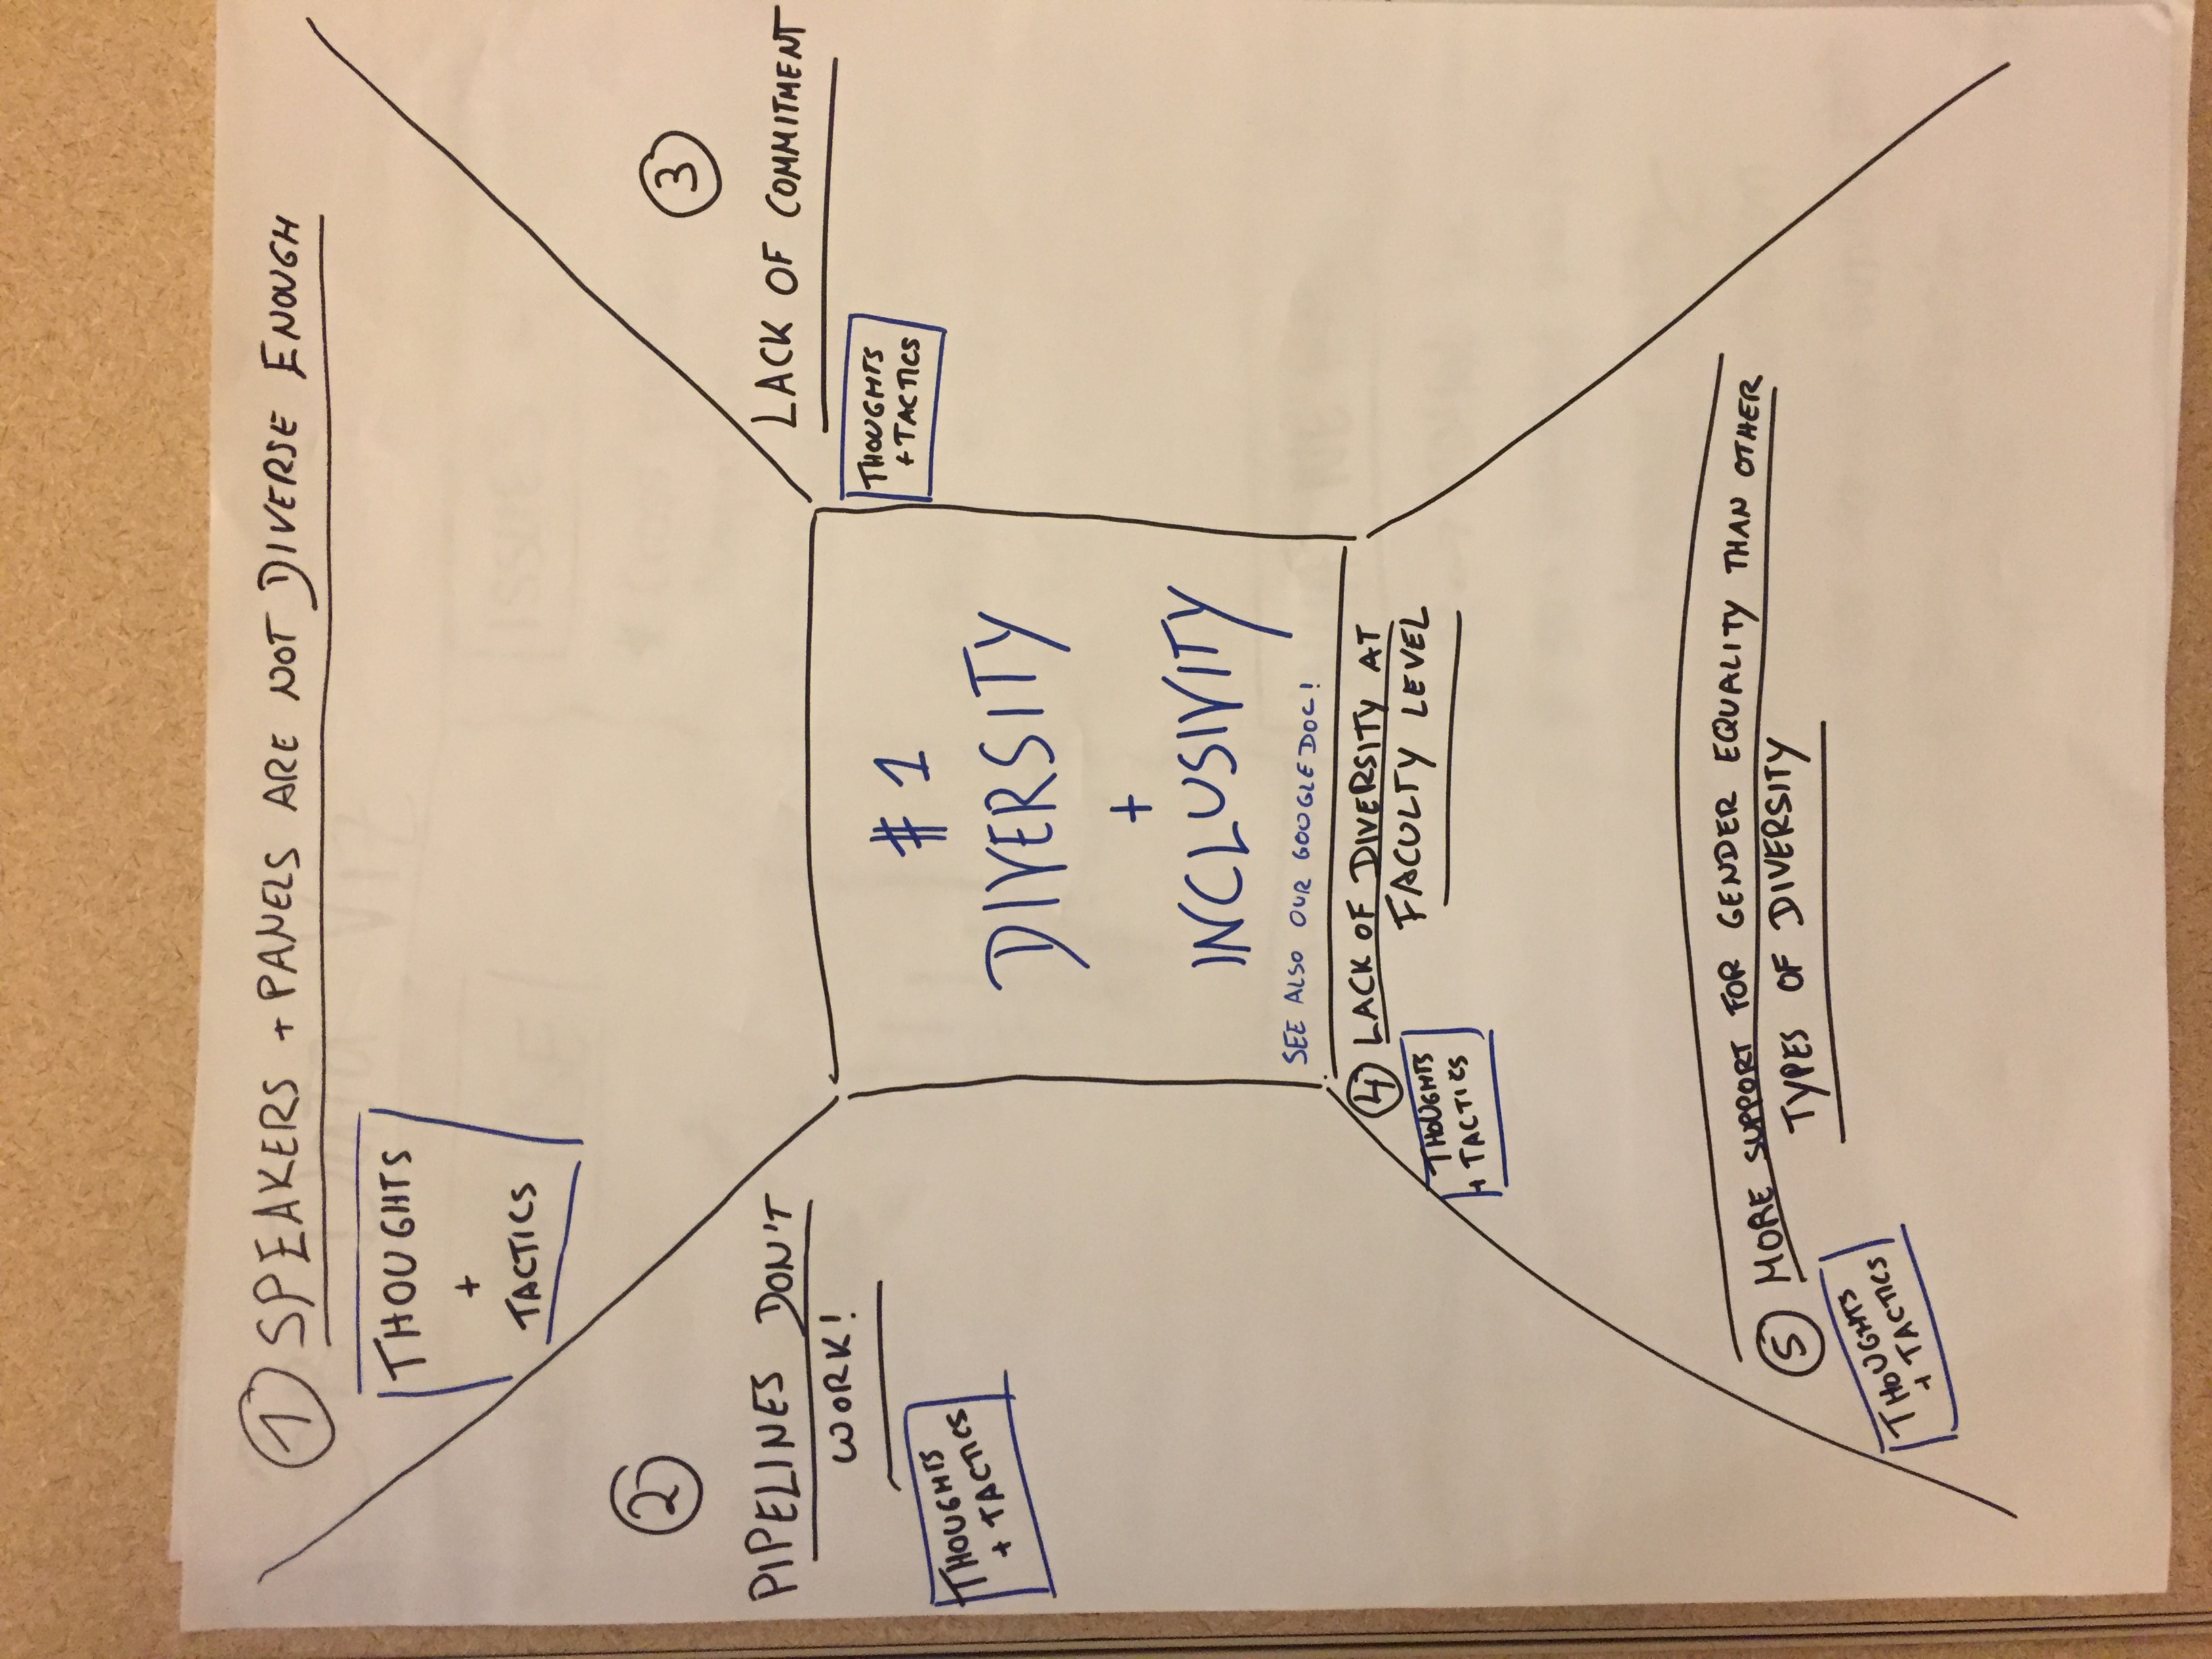 ① SPEAKERS + PANELS ARE NOT DIVERSE ENOUGH
THOUGHTS
+
TACTICS
②
PIPELINES DON'T
WORK!
THOUGHTS
+ TACTICS
③
LACK OF COMMITMENT
THOUGHTS
+ TACTICS
#1
DIVERSITY
+
INCLUSIVITY
SEE ALSO OUR GOOGLE DOC!
④ LACK OF DIVERSITY AT
FACULTY LEVEL
THOUGHTS
+ TACTICS
⑤ MORE SUPPORT FOR GENDER EQUALITY THAN OTHER
TYPES OF DIVERSITY
THOUGHTS
+ TACTICS